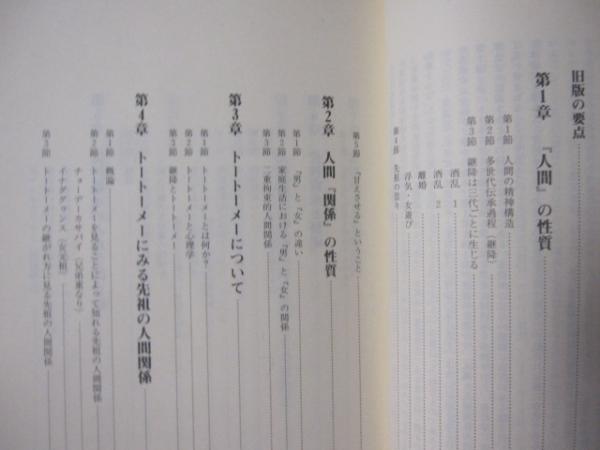 旧版の要点
第1章 『人間』の性質
第1節 人間の精神構造
第2節 多世代伝承過程（継降）
第3節 継降は三代ごとに生じる
酒乱 1
酒乱 2
離婚
浮気・女遊び
第4節 先祖の祟り
第5節 『甘えさせる』ということ
第2章 人間『関係』の性質
第1節 『男』と『女』の違い
第2節 家庭生活における『男』と『女』の関係
第3節 二重拘束的人間関係
第3章 トートーメーについて
第1節 トートーメーとは何か？
第2節 トートーメーと心理学
第3節 継降とトートーメー
第4章 トートーメーにみる先祖の人間関係
第1節 概論
第2節 トートーメーを見ることによって知れる先祖の人間関係
チョーデーカサバイ（兄弟重なり）
イナググヮンス（女元祖）
第3節 トートーメーの継がれ方に見る先祖の人間関係